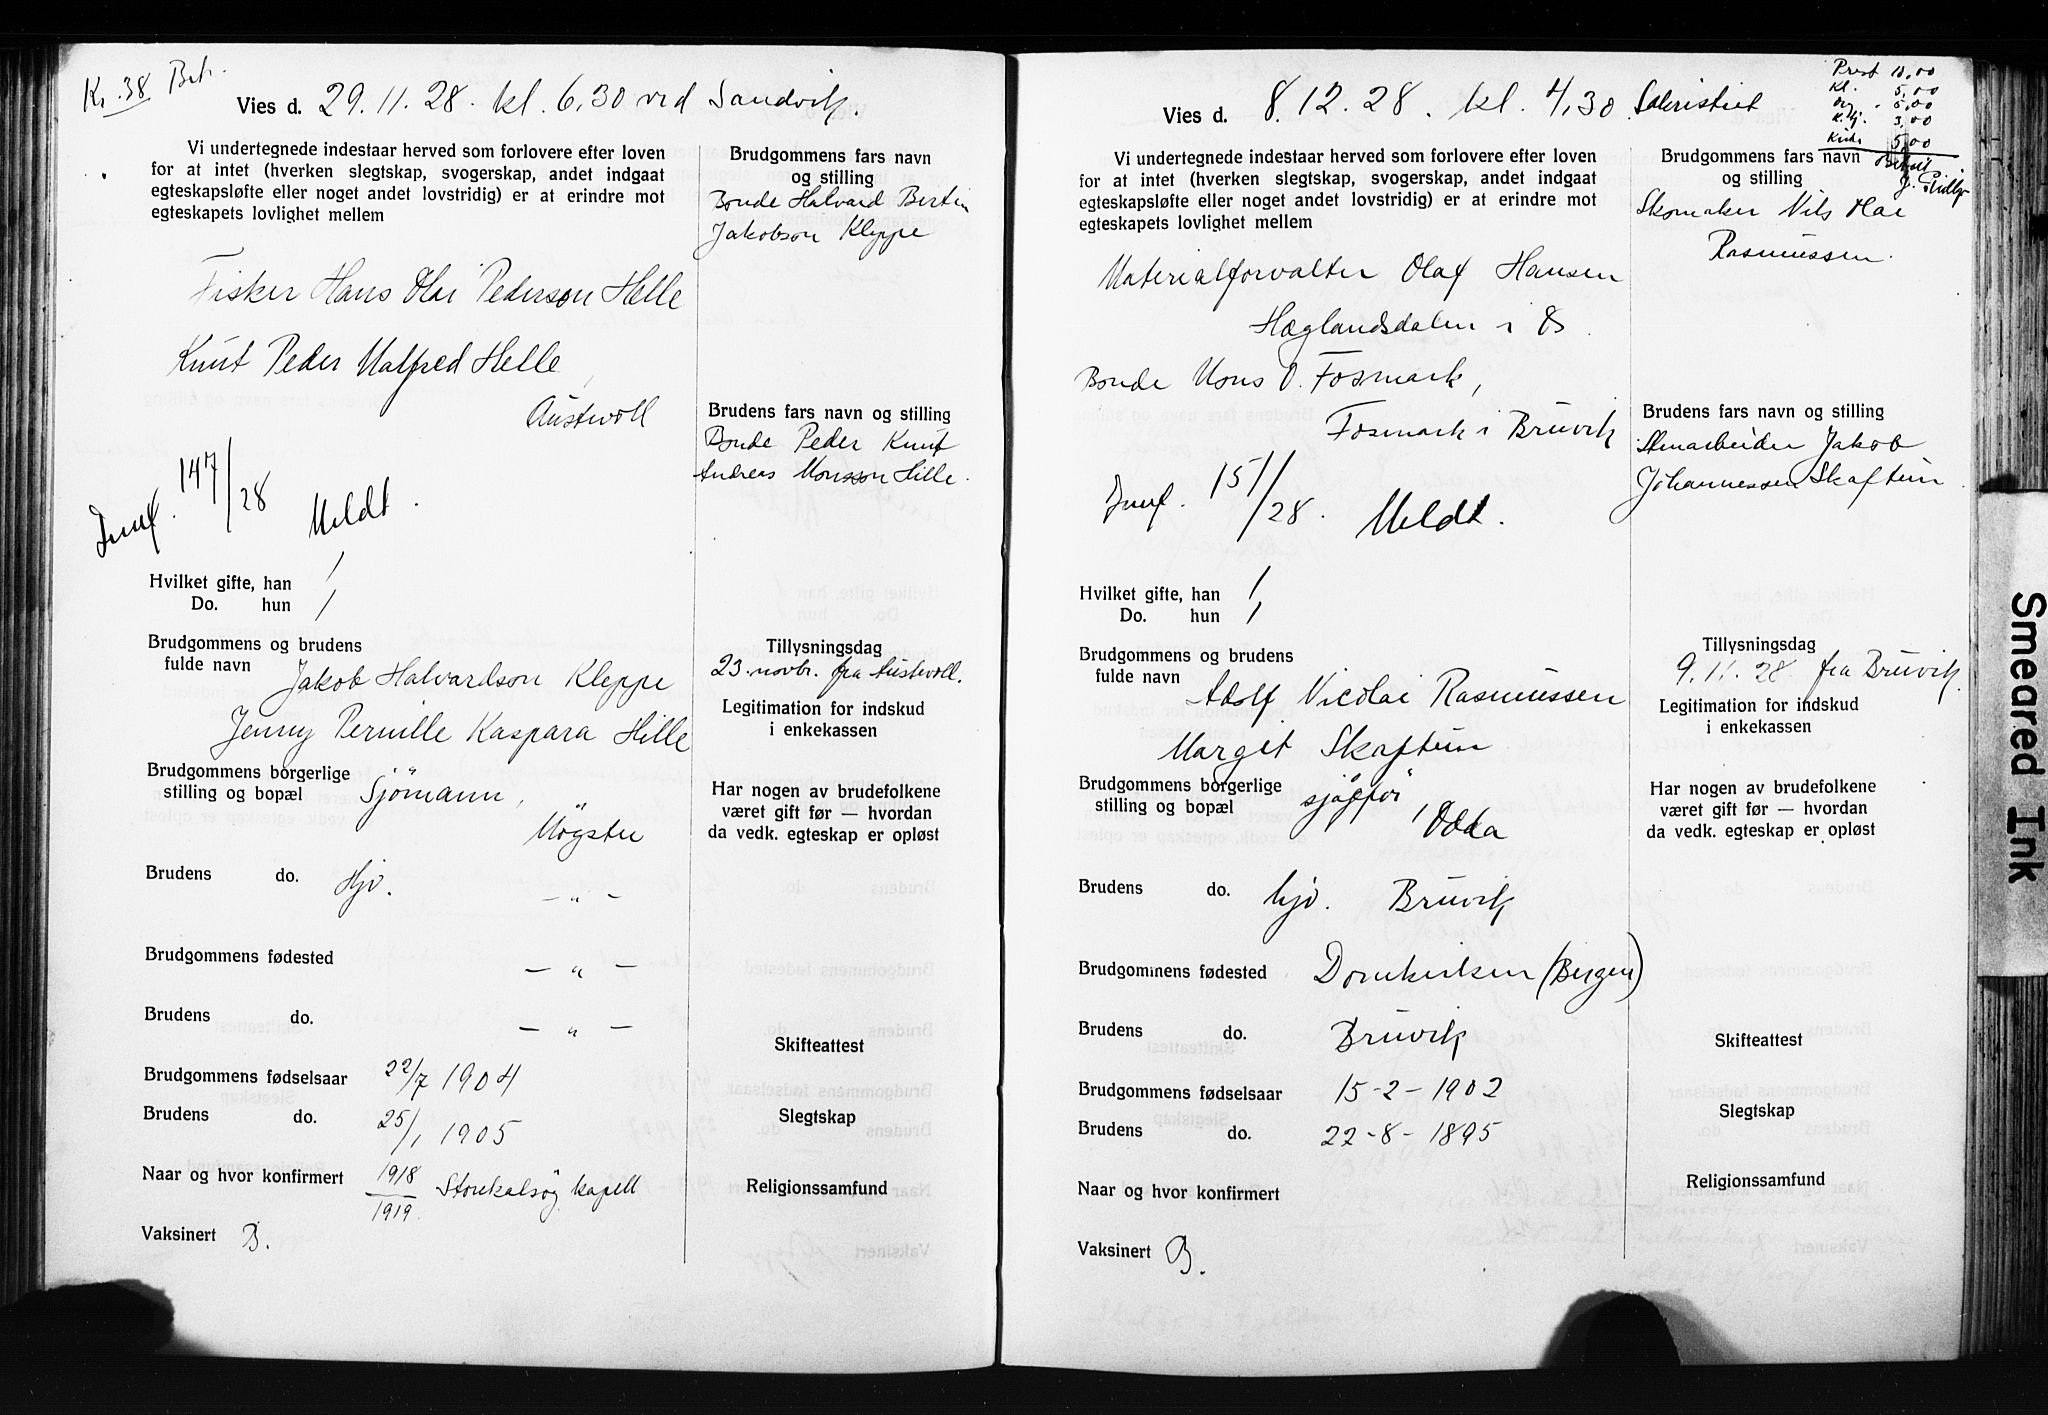 Kr. 38 Bet.
Vies d. 29.11.28. kl. 6,30 ved Sandvik.
Vi undertegnede indestaar herved som forlovere efter loven
for at intet (hverken slegtskap, svogerskap, andet indgaat
egteskapsløfte eller noget andet lovstridig) er at erindre mot
egteskapets lovlighet mellem
Brudgommens fars navn
og stilling
Bonde Halvard Bertin
Jakobson Kleppe
Fisker Hans Olai Pederson Helle
Knut Peder Malfred Helle,
Austevoll
Brudens fars navn og stilling
Bonde Peder Knut
Andreas Monsson Hille.
Innf. 147/28 Meldt.
Hvilket gifte, han 1
Do. hun 1
Brudgommens og brudens
fulde navn
Jakob Halvardson Kleppe
Jenny Pernille Kaspara Hille
Tillysningsdag
23. novbr. fra Austevoll.
Legitimation for indskud
i enkekassen
Brudgommens borgerlige
stilling og bopæl
Sjömann,
Mögster
Har nogen av brudefolkene
været gift før — hvordan
da vedk. egteskap er opløst
Brudens do. Hjv. — " —
Brudgommens fødested — " —
Brudens do. — " —
Skifteattest
Brudgommens fødselsaar 22/7 1904
Brudens do. 25/1 1905
Slegtskap
Naar og hvor konfirmert 1918/1919. Storekalsöy kapell
Religionssamfund
Vaksinert B.
Prest 10,00
Kl. 5,00
Org. 5,00
K.tj. 3,00
Kirke 5,00
Vies d. 8.12.28. kl. 4,30. Sakristiet
Vi undertegnede indestaar herved som forlovere efter loven
for at intet (hverken slegtskap, svogerskap, andet indgaat
egteskapsløfte eller noget andet lovstridig) er at erindre mot
egteskapets lovlighet mellem
Brudgommens fars navn
og stilling
Betalt
Skomaker Nils Olai
Rasmussen.
Materialforvalter Olaf Hansen
Hæglandsdalen i Os.
Bonde Mons O. Fosmark,
Fosmark i Bruvik
Brudens fars navn og stilling
Stenarbeider Jakob
Johannessen Skaftun.
Innf. 151/28. Meldt.
Hvilket gifte, han 1
Do. hun 1
Brudgommens og brudens
fulde navn
Adolf Nicolai Rasmussen
Marget Skaftun
Tillysningsdag
9.11.28 fra Bruvik.
Legitimation for indskud
i enkekassen
Brudgommens borgerlige
stilling og bopæl
sjåffør, Odda
Har nogen av brudefolkene
været gift før — hvordan
da vedk. egteskap er opløst
Brudens do. hjv. Bruvik
Brudgommens fødested Domkirken (Bergen)
Brudens do. Bruvik
Skifteattest
Brudgommens fødselsaar 15-2-1902
Brudens do. 22-8-1895
Slegtskap
Naar og hvor konfirmert
Religionssamfund
Vaksinert B.
Smeared Ink